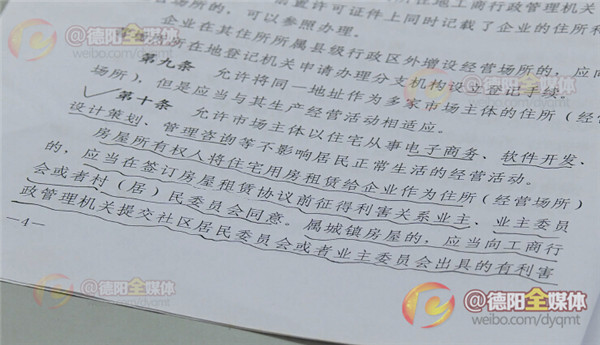 置许可证件上同时记载了企业的住所和
营场所的，可以参照办理。
企业在其住所所属县级行政区外增设经营场所的，应向
所在地登记机关申请办理分支机构设立登记手续。
第九条 允许将同一地址作为多家市场主体的住所（经营
场所），但是应当与其生产经营活动相适应。
第十条 允许市场主体以住宅从事电子商务、软件开发、
设计策划、管理咨询等不影响居民正常生活的经营活动。
房屋所有权人将住宅用房租赁给企业作为住所（经营场所）
的，应当在签订房屋租赁协议前征得利害关系业主、业主委员
会或者村（居）民委员会同意。属城镇房屋的，应当向工商行
政管理机关提交社区居民委员会或者业主委员会出具的有利害
—4—
@德阳全媒体
weibo.com/dyqmt
@德阳全媒体
weibo.com/dyqmt
@德阳全媒体
weibo.com/dyqmt